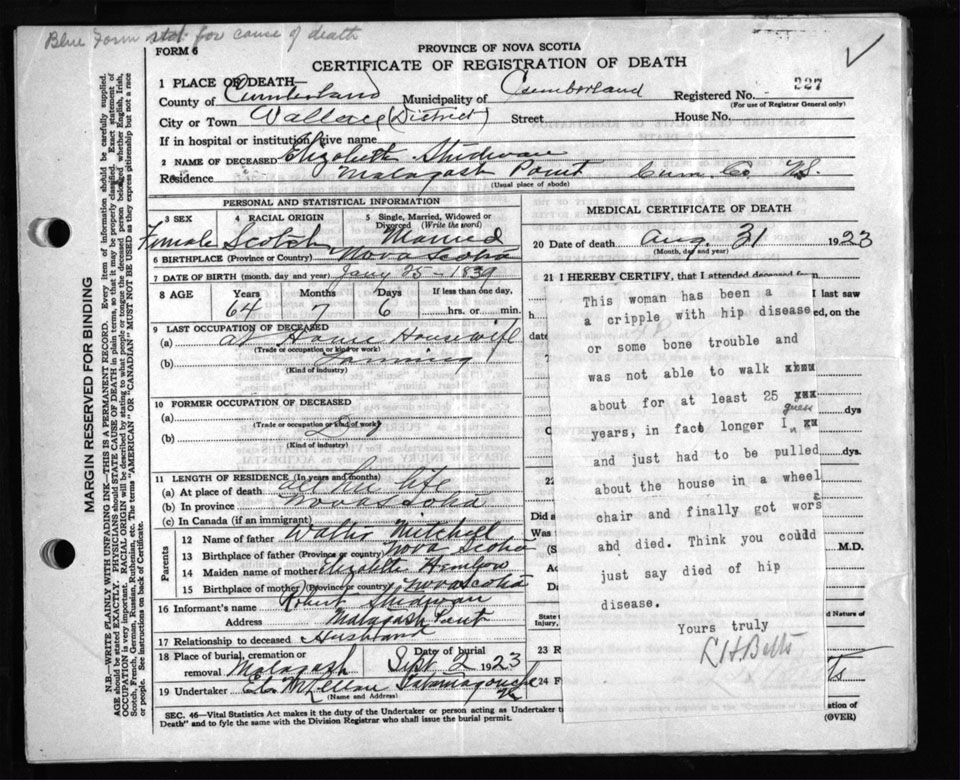 Blue Form std. for cause of death
FORM 6
PROVINCE OF NOVA SCOTIA
CERTIFICATE OF REGISTRATION OF DEATH
1 PLACE OF DEATH—
County of Cumberland Municipality of Cumberland Registered No. 227
(For use of Registrar General only)
City or Town Wallace (District) Street House No.
If in hospital or institution, give name
2 NAME OF DECEASED Elizabeth
Residence Malagash Point Cum. Co. N.S.
(Usual place of abode)
PERSONAL AND STATISTICAL INFORMATION
3 SEX
Female
4 RACIAL ORIGIN
Scotch
5 Single, Married, Widowed or Divorced (Write the word)
Married
6 BIRTHPLACE (Province or Country) Nova Scotia
7 DATE OF BIRTH (month, day and year) Jany 25 - 1839
8 AGE Years Months Days If less than one day,
64 7 6 hrs. or min.
9 LAST OCCUPATION OF DECEASED
(a) at Home Housewife
(Trade or occupation or kind or work)
(b) Farming
(Kind of industry)
10 FORMER OCCUPATION OF DECEASED
(a)
(Trade or occupation or kind of work)
(b) Do
(Kind of industry)
11 LENGTH OF RESIDENCE (In years and months)
(a) At place of death all her life
(b) In province Nova Scotia
(c) In Canada (if an immigrant)
Parents
12 Name of father Mitchell
13 Birthplace of father (Province or country) Nova Scotia
14 Maiden name of mother Elizabeth
15 Birthplace of mother (Province or country) Nova Scotia
16 Informant's name Robert
Address Malagash Point
17 Relationship to deceased Husband
18 Place of burial, cremation or removal Malagash
Date of burial Sept 2 1923
19 Undertaker Tatamagouche
(Name and Address)
SEC. 46—Vital Statistics Act makes it the duty of the Undertaker or person acting as Undertaker t
Death" and to fyle the same with the Division Registrar who shall issue the burial permit.
MEDICAL CERTIFICATE OF DEATH
20 Date of death Aug. 31 1923
(Month, day and year)
21 I HEREBY CERTIFY, that I attended deceased from
I last saw
h
ed, on the
date
dys
dys.
22
Did a
Was
(S
M.D.
Ad
Da
State
Injury,
nd Nature of
23 R
24 F
ation of
(OVER)
This woman has been a
a cripple with hip disease
or some bone trouble and
was not able to walk
about for at least 25
years, in fact longer I guess
and just had to be pulled
about the house in a wheel
chair and finally got wors
and died. Think you could
just say died of hip
disease.
Yours truly
R H Betts
MARGIN RESERVED FOR BINDING
N.B.—WRITE PLAINLY WITH UNFADING INK—THIS IS A PERMANENT RECORD. Every item of information should be carefully supplied.
AGE should be stated EXACTLY. PHYSICIANS should STATE CAUSE OF DEATH in plain terms, so that it may be properly classified. Exact statement of
OCCUPATION is very important. RACIAL ORIGIN will be described by stating to what people or tongue the deceased person belonged whether English, Irish,
Scotch, French, German, Russian, Ruthenian, etc. The terms "AMERICAN" OR "CANADIAN" MUST NOT BE USED as they express citizenship but not a race
or people. See instructions on back of Certificate.